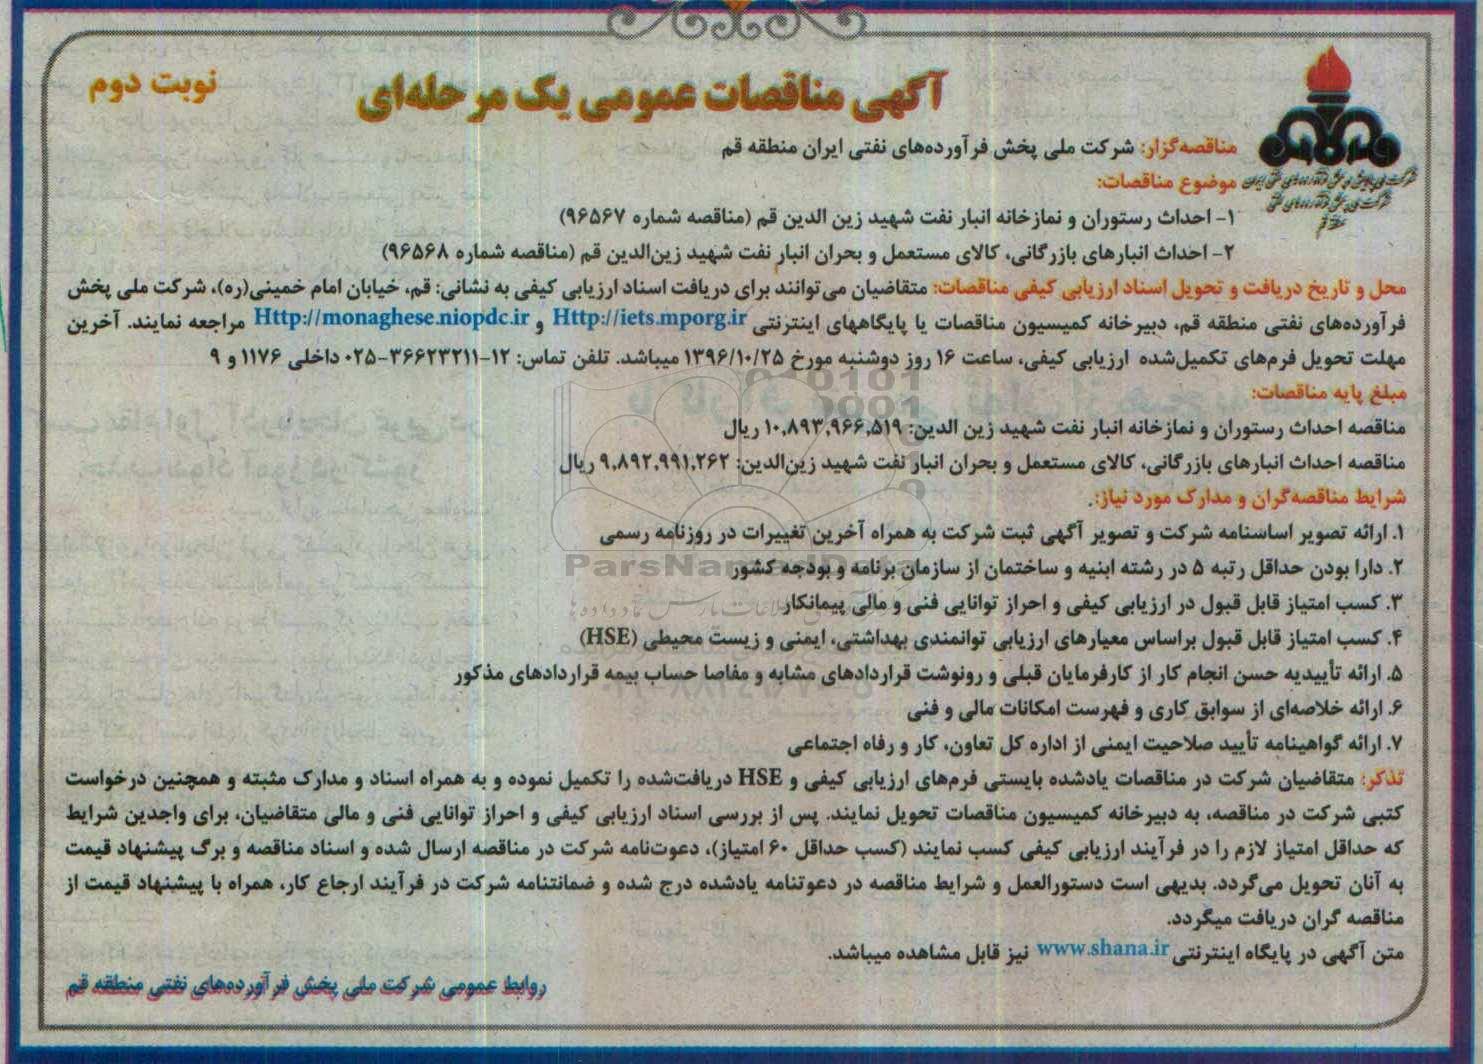 آگهی مناقصات عمومی یک مرحله‌ای
نوبت دوم
شرکت ملی پخش فرآورده‌های نفتی
منطقه قم
مناقصه‌گزار: شرکت ملی پخش فرآورده‌های نفتی ایران منطقه قم
موضوع مناقصات:
۱- احداث رستوران و نمازخانه انبار نفت شهید زین الدین قم (مناقصه شماره ۹۶۵۶۷)
۲- احداث انبارهای بازرگانی، کالای مستعمل و بحران انبار نفت شهید زین‌الدین قم (مناقصه شماره ۹۶۵۶۸)
محل و تاریخ دریافت و تحویل اسناد ارزیابی کیفی مناقصات: متقاضیان می‌توانند برای دریافت اسناد ارزیابی کیفی به نشانی: قم، خیابان امام خمینی(ره)، شرکت ملی پخش
فرآورده‌های نفتی منطقه قم، دبیرخانه کمیسیون مناقصات یا پایگاههای اینترنتی Http://iets.mporg.ir و Http://monaghese.niopdc.ir مراجعه نمایند. آخرین
مهلت تحویل فرم‌های تکمیل‌شده ارزیابی کیفی، ساعت ۱۶ روز دوشنبه مورخ ۱۳۹۶/۱۰/۲۵ میباشد. تلفن تماس: ۱۲-۳۶۶۲۳۲۱۱-۰۲۵ داخلی ۱۱۷۶ و ۹
مبلغ پایه مناقصات:
مناقصه احداث رستوران و نمازخانه انبار نفت شهید زین الدین: ۱۰,۸۹۳,۹۶۶,۵۱۹ ریال
مناقصه احداث انبارهای بازرگانی، کالای مستعمل و بحران انبار نفت شهید زین‌الدین: ۹,۸۹۲,۹۹۱,۲۶۲ ریال
شرایط مناقصه‌گران و مدارک مورد نیاز:
۱. ارائه تصویر اساسنامه شرکت و تصویر آگهی ثبت شرکت به همراه آخرین تغییرات در روزنامه رسمی
۲. دارا بودن حداقل رتبه ۵ در رشته ابنیه و ساختمان از سازمان برنامه و بودجه کشور
ParsNamadData
۳. کسب امتیاز قابل قبول در ارزیابی کیفی و احراز توانایی فنی و مالی پیمانکار
۴. کسب امتیاز قابل قبول براساس معیارهای ارزیابی توانمندی بهداشتی، ایمنی و زیست محیطی (HSE)
۵. ارائه تأییدیه حسن انجام کار از کارفرمایان قبلی و رونوشت قراردادهای مشابه و مفاصا حساب بیمه قراردادهای مذکور
۶. ارائه خلاصه‌ای از سوابق کاری و فهرست امکانات مالی و فنی
۷. ارائه گواهینامه تأیید صلاحیت ایمنی از اداره کل تعاون، کار و رفاه اجتماعی
تذکر: متقاضیان شرکت در مناقصات یادشده بایستی فرم‌های ارزیابی کیفی و HSE دریافت‌شده را تکمیل نموده و به همراه اسناد و مدارک مثبته و همچنین درخواست
کتبی شرکت در مناقصه، به دبیرخانه کمیسیون مناقصات تحویل نمایند. پس از بررسی اسناد ارزیابی کیفی و احراز توانایی فنی و مالی متقاضیان، برای واجدین شرایط
که حداقل امتیاز لازم را در فرآیند ارزیابی کیفی کسب نمایند (کسب حداقل ۶۰ امتیاز)، دعوت‌نامه شرکت در مناقصه ارسال شده و اسناد مناقصه و برگ پیشنهاد قیمت
به آنان تحویل می‌گردد. بدیهی است دستورالعمل و شرایط مناقصه در دعوتنامه یادشده درج شده و ضمانتنامه شرکت در فرآیند ارجاع کار، همراه با پیشنهاد قیمت از
مناقصه گران دریافت میگردد.
متن آگهی در پایگاه اینترنتی www.shana.ir نیز قابل مشاهده میباشد.
روابط عمومی شرکت ملی پخش فرآورده‌های نفتی منطقه قم